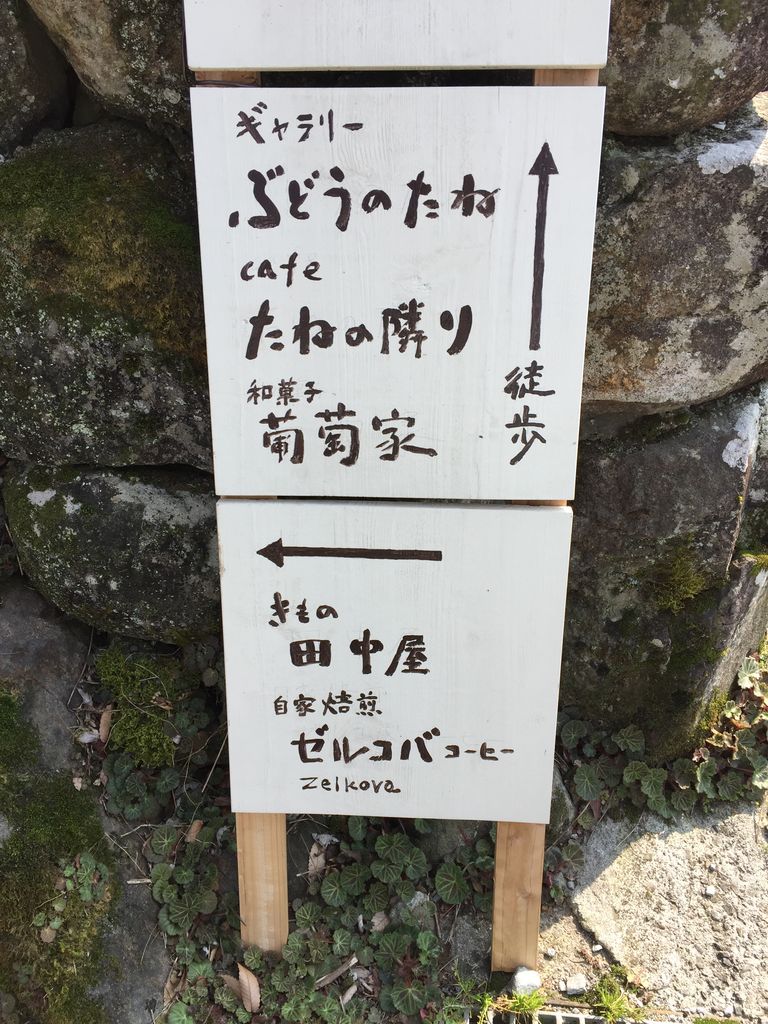 ギャラリー
ぶどうのたね
cafe
たねの隣り
和菓子
葡萄家
徒歩
きもの
田中屋
自家焙煎
ゼルコバコーヒー
zelkova